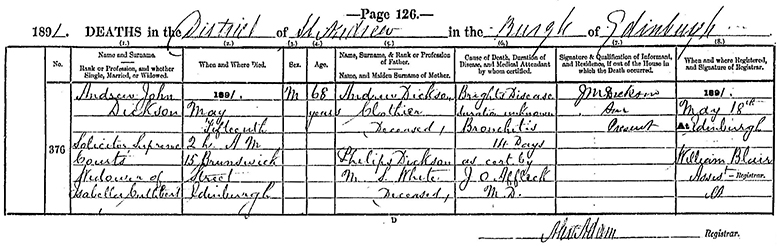 —Page 126.—
1891. DEATHS in the District of St Andrew in the Burgh of Edinburgh
(1.) (2.) (3.) (4.) (5.) (6.) (7.) (8.)
No.
Name and Surname.
Rank or Profession, and whether Single, Married, or Widowed.
When and Where Died.
Sex.
Age.
Name, Surname, & Rank or Profession of Father.
Name, and Maiden Surname of Mother.
Cause of Death, Duration of Disease, and Medical Attendant by whom certified.
Signature & Qualification of Informant, and Residence, if out of the House in which the Death occurred.
When and where Registered, and Signature of Registrar.
376
Andrew John
Dickson
Solicitor Supreme
Courts
Widower of
Isabella Cuthbert
1891.
May
Fifteenth
2 h. A M
15 Brunswick
Street
Edinburgh
M
68
years
Andrew Dickson
Clothier
Deceased,
Dickson
M. S. White
Deceased,
Brights Disease
duration unknown
Bronchitis
14 Days
as cert by
J. O. Affleck
M. D.
J M Dickson
Son
Present
1891.
May 18th
At Edinburgh
William Blair
Assist Registrar.
D
Alex Adam Registrar.